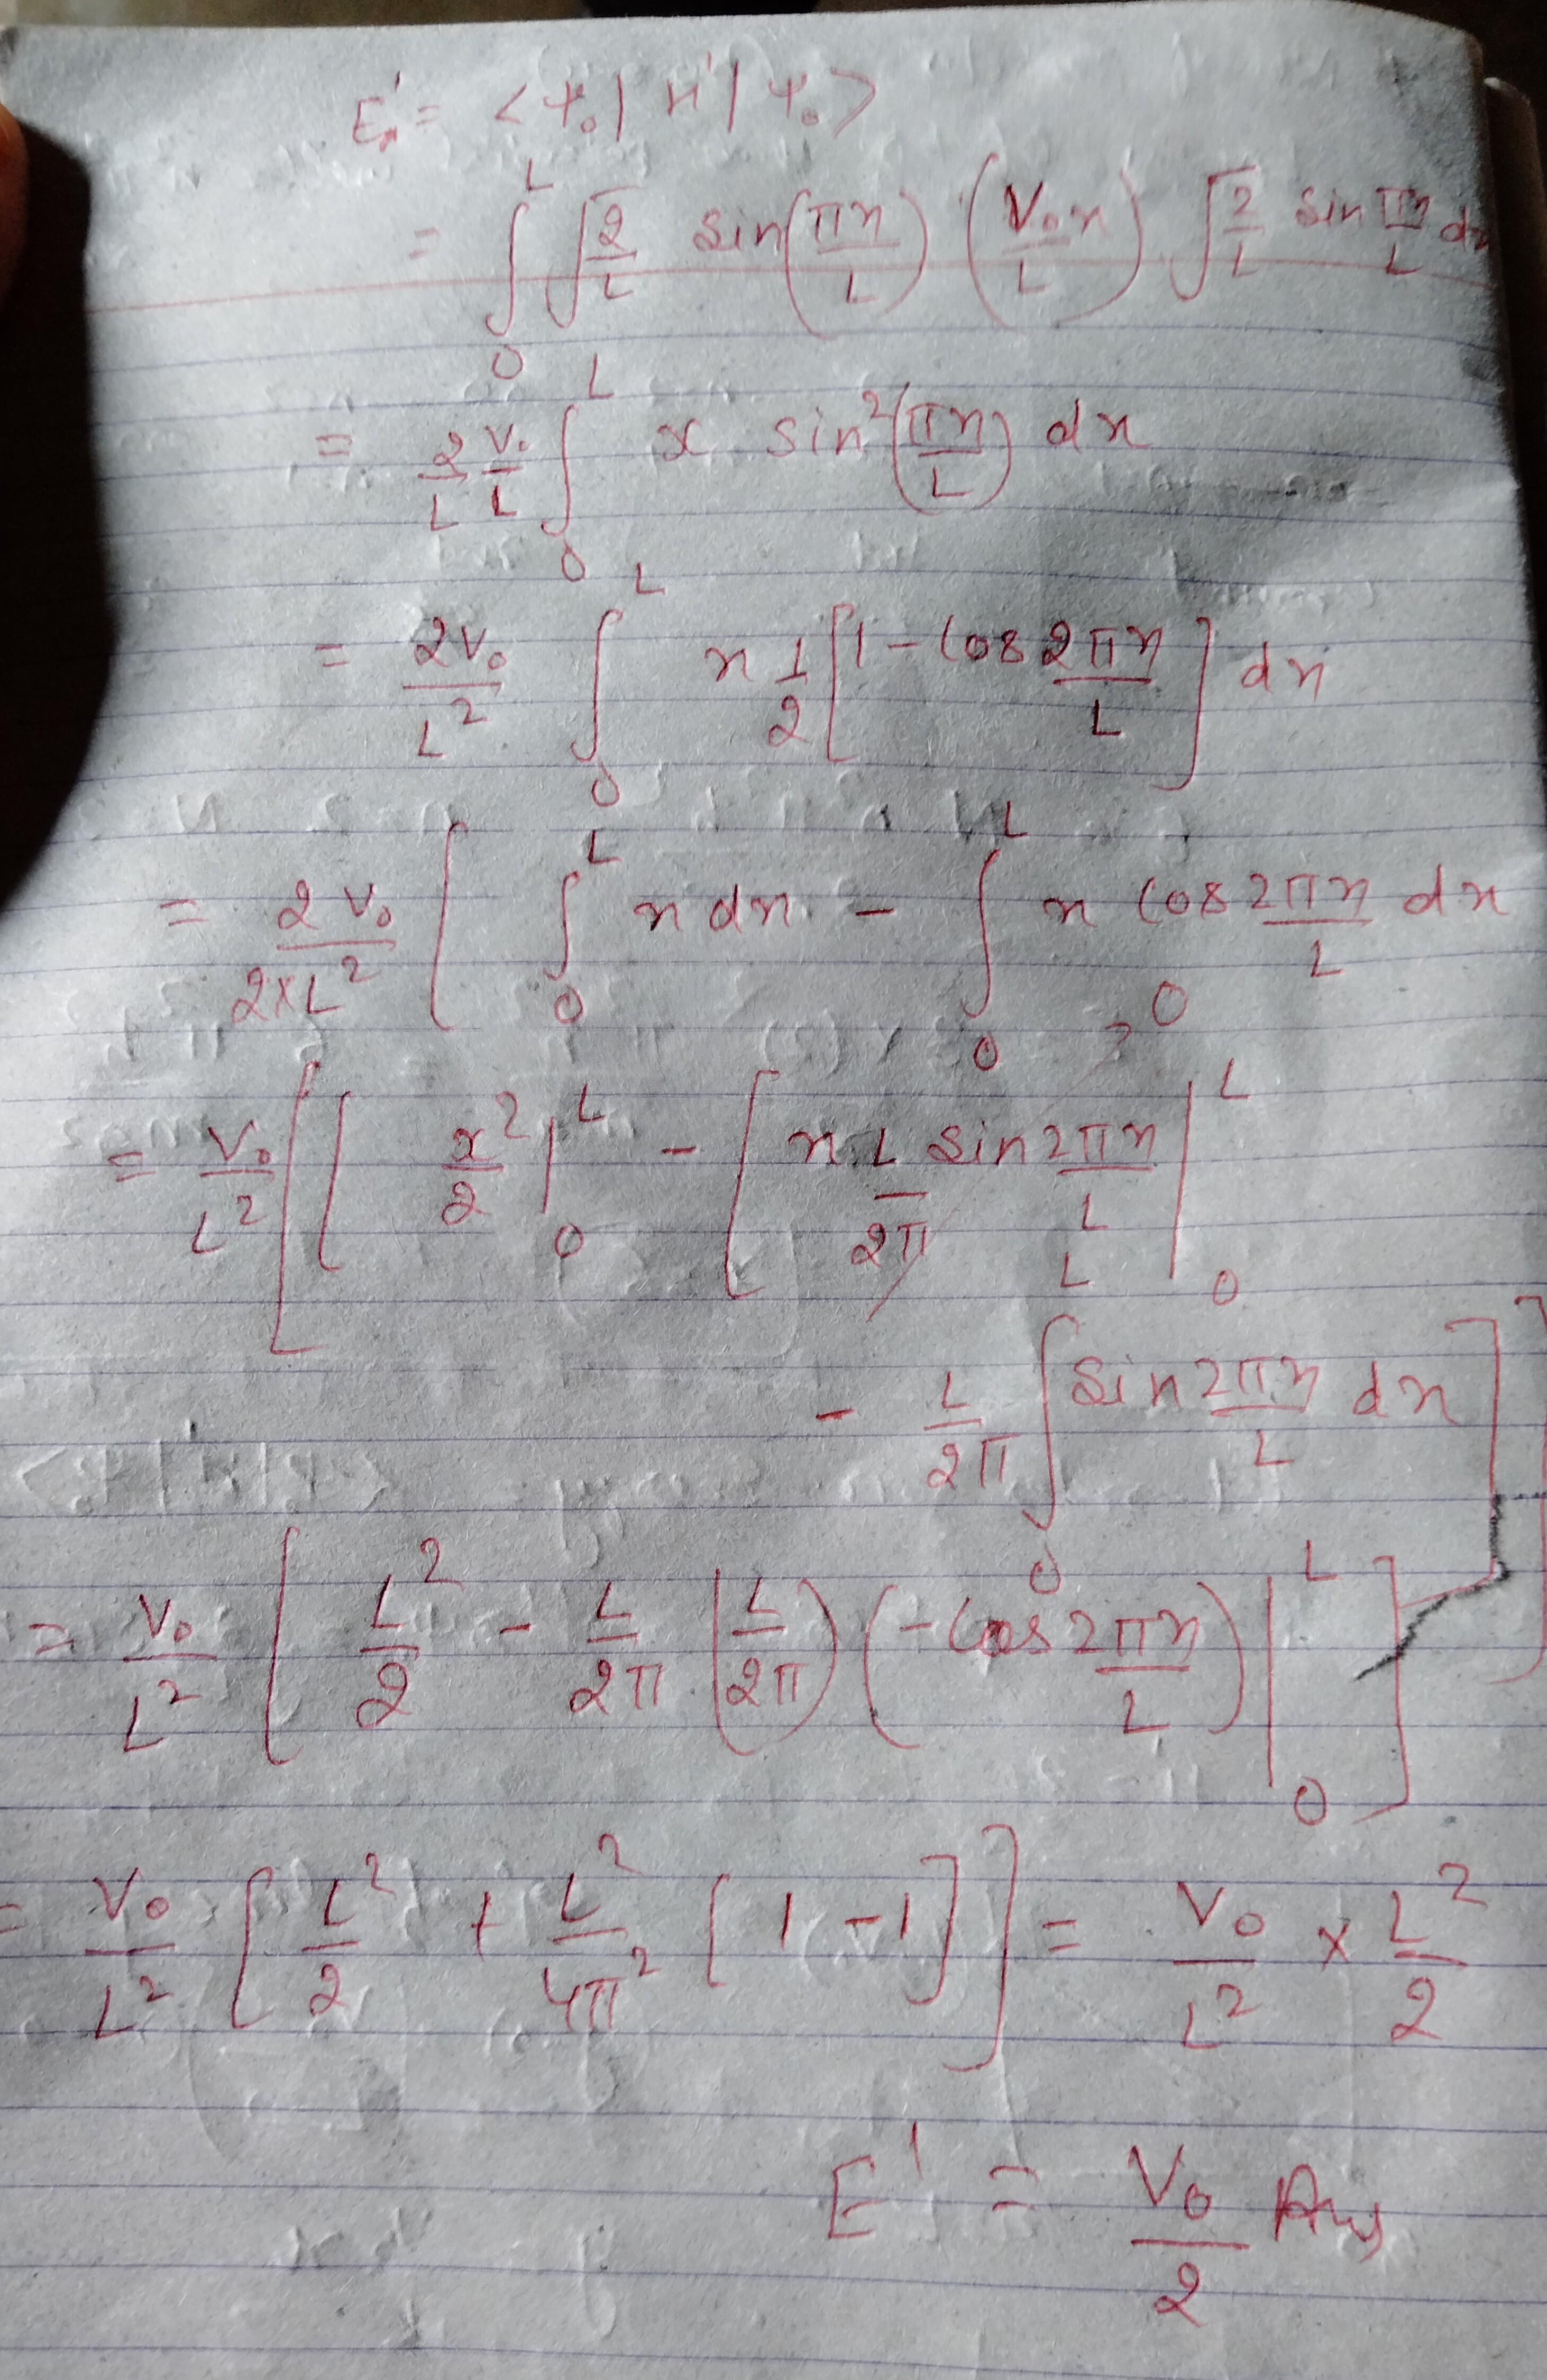 E₁' = <ψ₀| H' |ψ₀>
= ∫₀ᴸ √(2/L) sin(πx/L) (V₀x/L) √(2/L) sin πx/L dx
= 2/L V₀/L ∫₀ᴸ x sin²(πx/L) dx
= 2V₀/L² ∫₀ᴸ x 1/2 [1 - cos 2πx/L] dx
= 2V₀/(2×L²) [ ∫₀ᴸ x dx - ∫₀ᴸ x cos 2πx/L dx
0
= V₀/L² [ [ x²/2 |₀ᴸ - [ x L/2π sin 2πx/L |₀ᴸ
- L/2π ∫₀ᴸ sin 2πx/L dx ] ]
= V₀/L² [ L²/2 - L/2π (L/2π) (-cos 2πx/L) |₀ᴸ ]
= V₀/L² [ L²/2 + L²/4π² [1 - 1] ] = V₀/L² × L²/2
E' = V₀/2 Ans